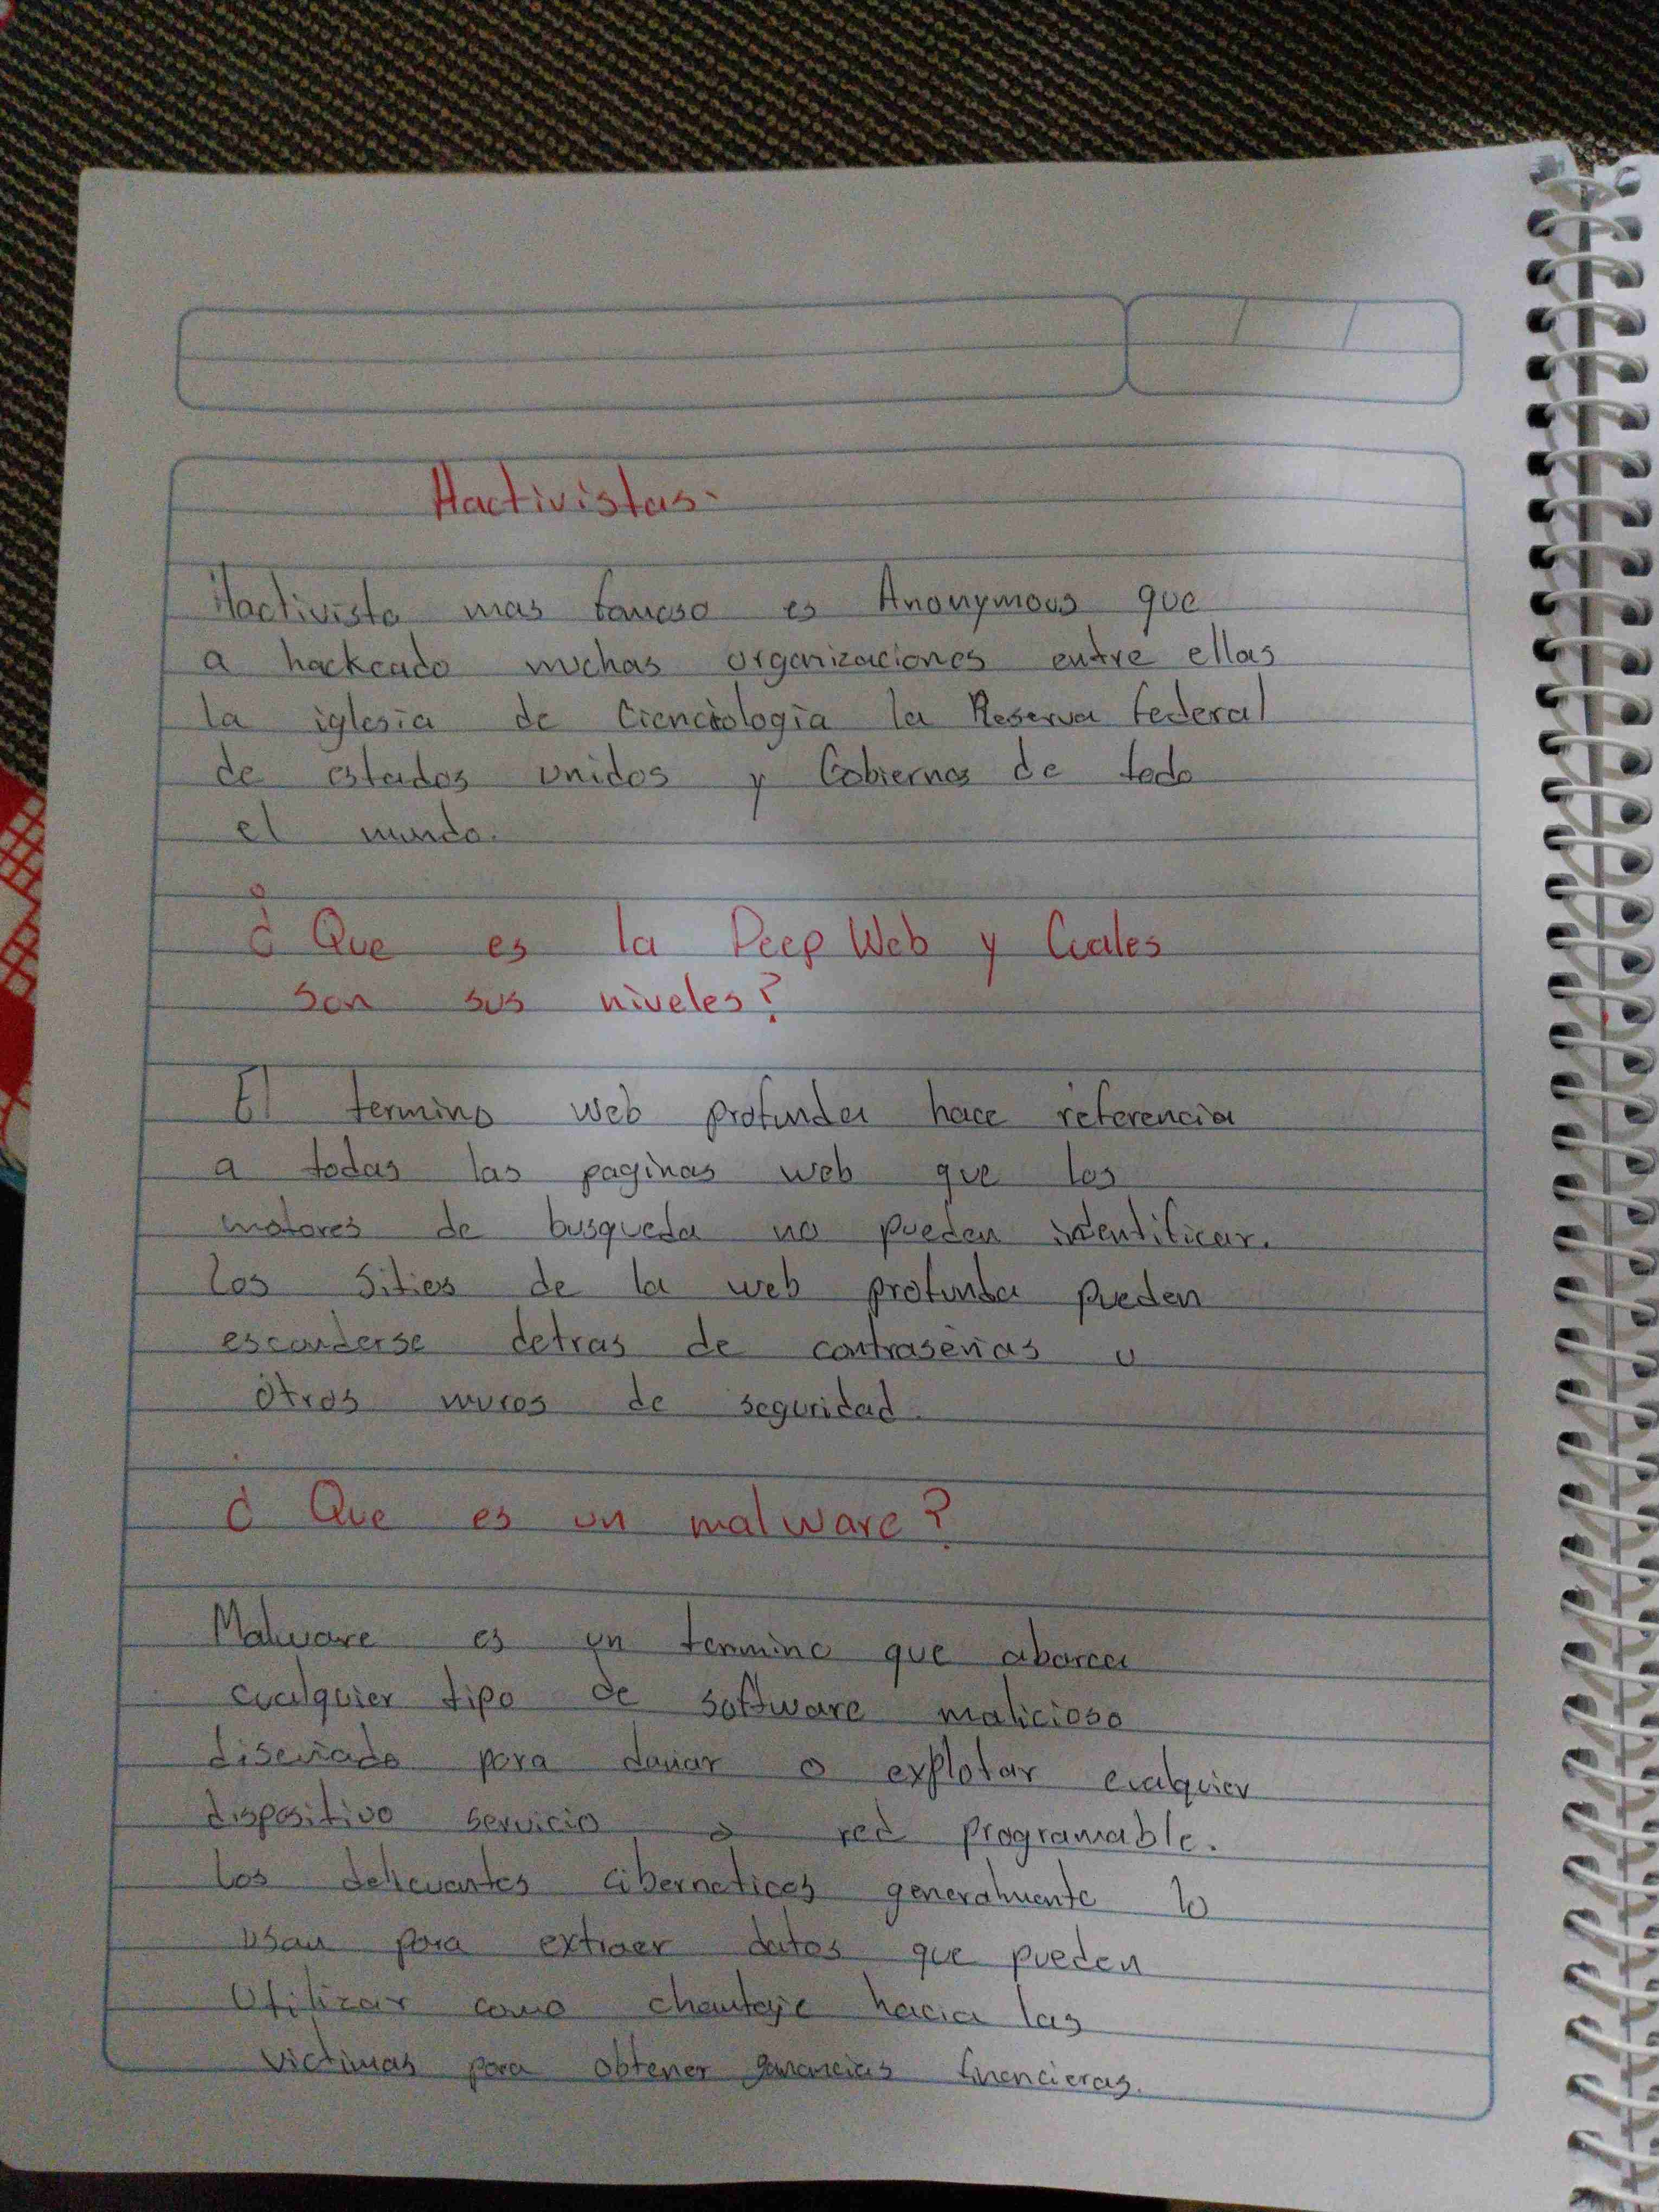 Hactivistas.
Hactivista mas famoso es Anonymous que
a hackeado muchas organizaciones entre ellas
la iglesia de Cienciologia la Reserva federal
de estados unidos y Gobiernos de todo
el mundo.
¿ Que es la Deep Web y Cuales
son sus niveles?
El termino web profunda hace referencia
a todas las paginas web que los
motores de busqueda no pueden identificar.
los sitios de la web profunda pueden
esconderse detras de contraseñas u
otros muros de seguridad.
¿ Que es un malware?
Malware es un termino que abarca
cualquier tipo de software malicioso
diseñado para dañar o explotar cualquier
dispositivo servicio o red programable.
los delicuantes ciberneticos generalmente lo
usan para extraer datos que pueden
Utilizar como chantaje hacia las
victimas para obtener ganancias financieras.